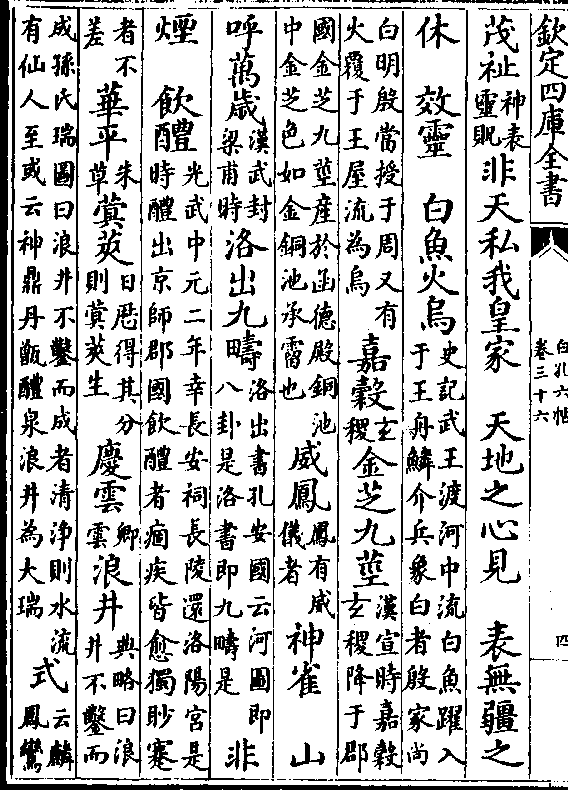 欽定四庫全書
白孔六帖
卷三十六
四
茂祉神表靈貺非天私我皇家　天地之心見　表無疆之
休　效靈　白魚火烏史記武王渡河中流白魚躍入于王舟鱗介兵象白者殷家尚
白明殷當授于周又有火覆于王屋流為烏嘉穀玄稷金芝九莖漢宣時嘉穀玄稷降于郡
國金芝九莖產於函德殿銅池中金芝色如金銅池承霤也威鳳鳳有威儀者神雀　山
呼萬歲漢武封梁甫時洛出九疇洛出書孔安國云河圖即八卦是洛書即九疇是非
煙　飲醴光武中元二年幸長安祠長陵還洛陽宮是時醴出京師郡國飲醴者痼疾皆愈獨眇蹇
者不差華平朱草蓂莢日厯得其分則蓂莢生慶雲卿雲浪井典略曰浪井不鑿而
成孫氏瑞圖曰浪井不鑿而成者清淨則水流有仙人至或云神鼎丹甑醴泉浪井為大瑞式云麟鳳鸞